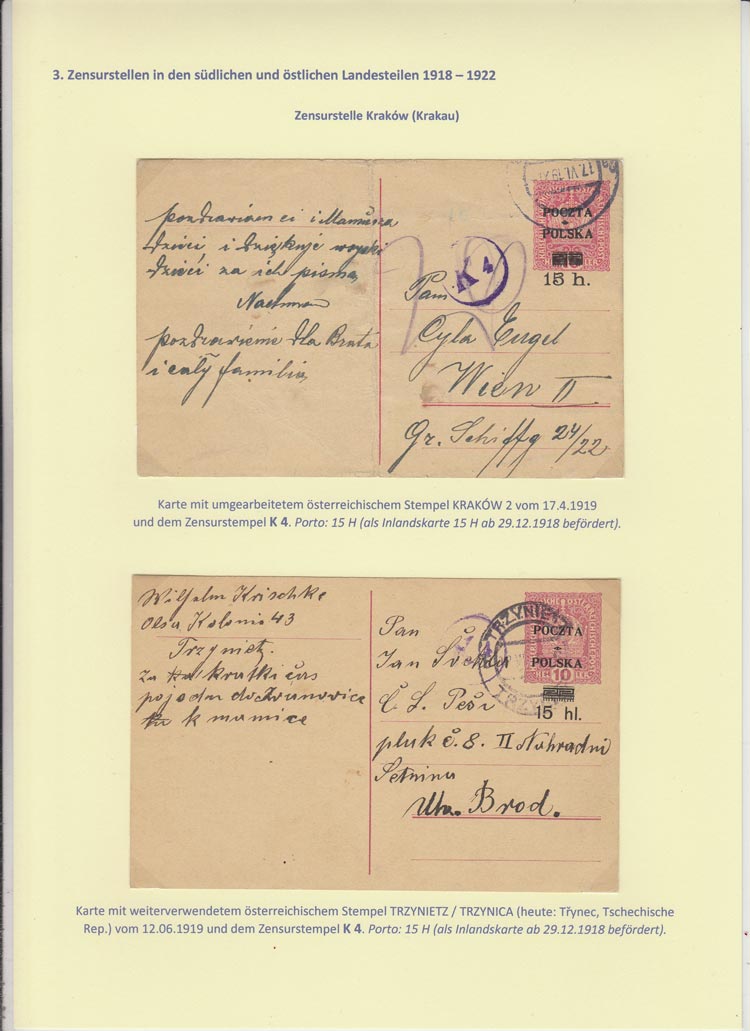 3. Zensurstellen in den südlichen und östlichen Landesteilen 1918 – 1922
Zensurstelle Kraków (Krakau)
17. VI. 19
POCZTA
POLSKA
15 h.
K 4
pozdrawiam ci i Mamusza
Dzieci i dziękuje
Dzieci za ich pisma
Nachman
pozdrawienie dla Brata
i cały familia
Pani
Cyla Engel
Wien II
Gr. Schiffg 24/22
Karte mit umgearbeitetem österreichischem Stempel KRAKÓW 2 vom 17.4.1919
und dem Zensurstempel K 4. Porto: 15 H (als Inlandskarte 15 H ab 29.12.1918 befördert).
Wilhelm Krischke
Olsa Kolonio 43
Trzynietz.
za kratki čas
pojedu do Ivanovice
k mamice
TRZYNIETZ
POCZTA
POLSKA
10
15 hl.
Pan
Jan
Č. L. Peši
pluk č. 8. II Náhradni
Setnina
Uh. Brod.
Karte mit weiterverwendetem österreichischem Stempel TRZYNIETZ / TRZYNICA (heute: Třynec, Tschechische
Rep.) vom 12.06.1919 und dem Zensurstempel K 4. Porto: 15 H (als Inlandskarte ab 29.12.1918 befördert).